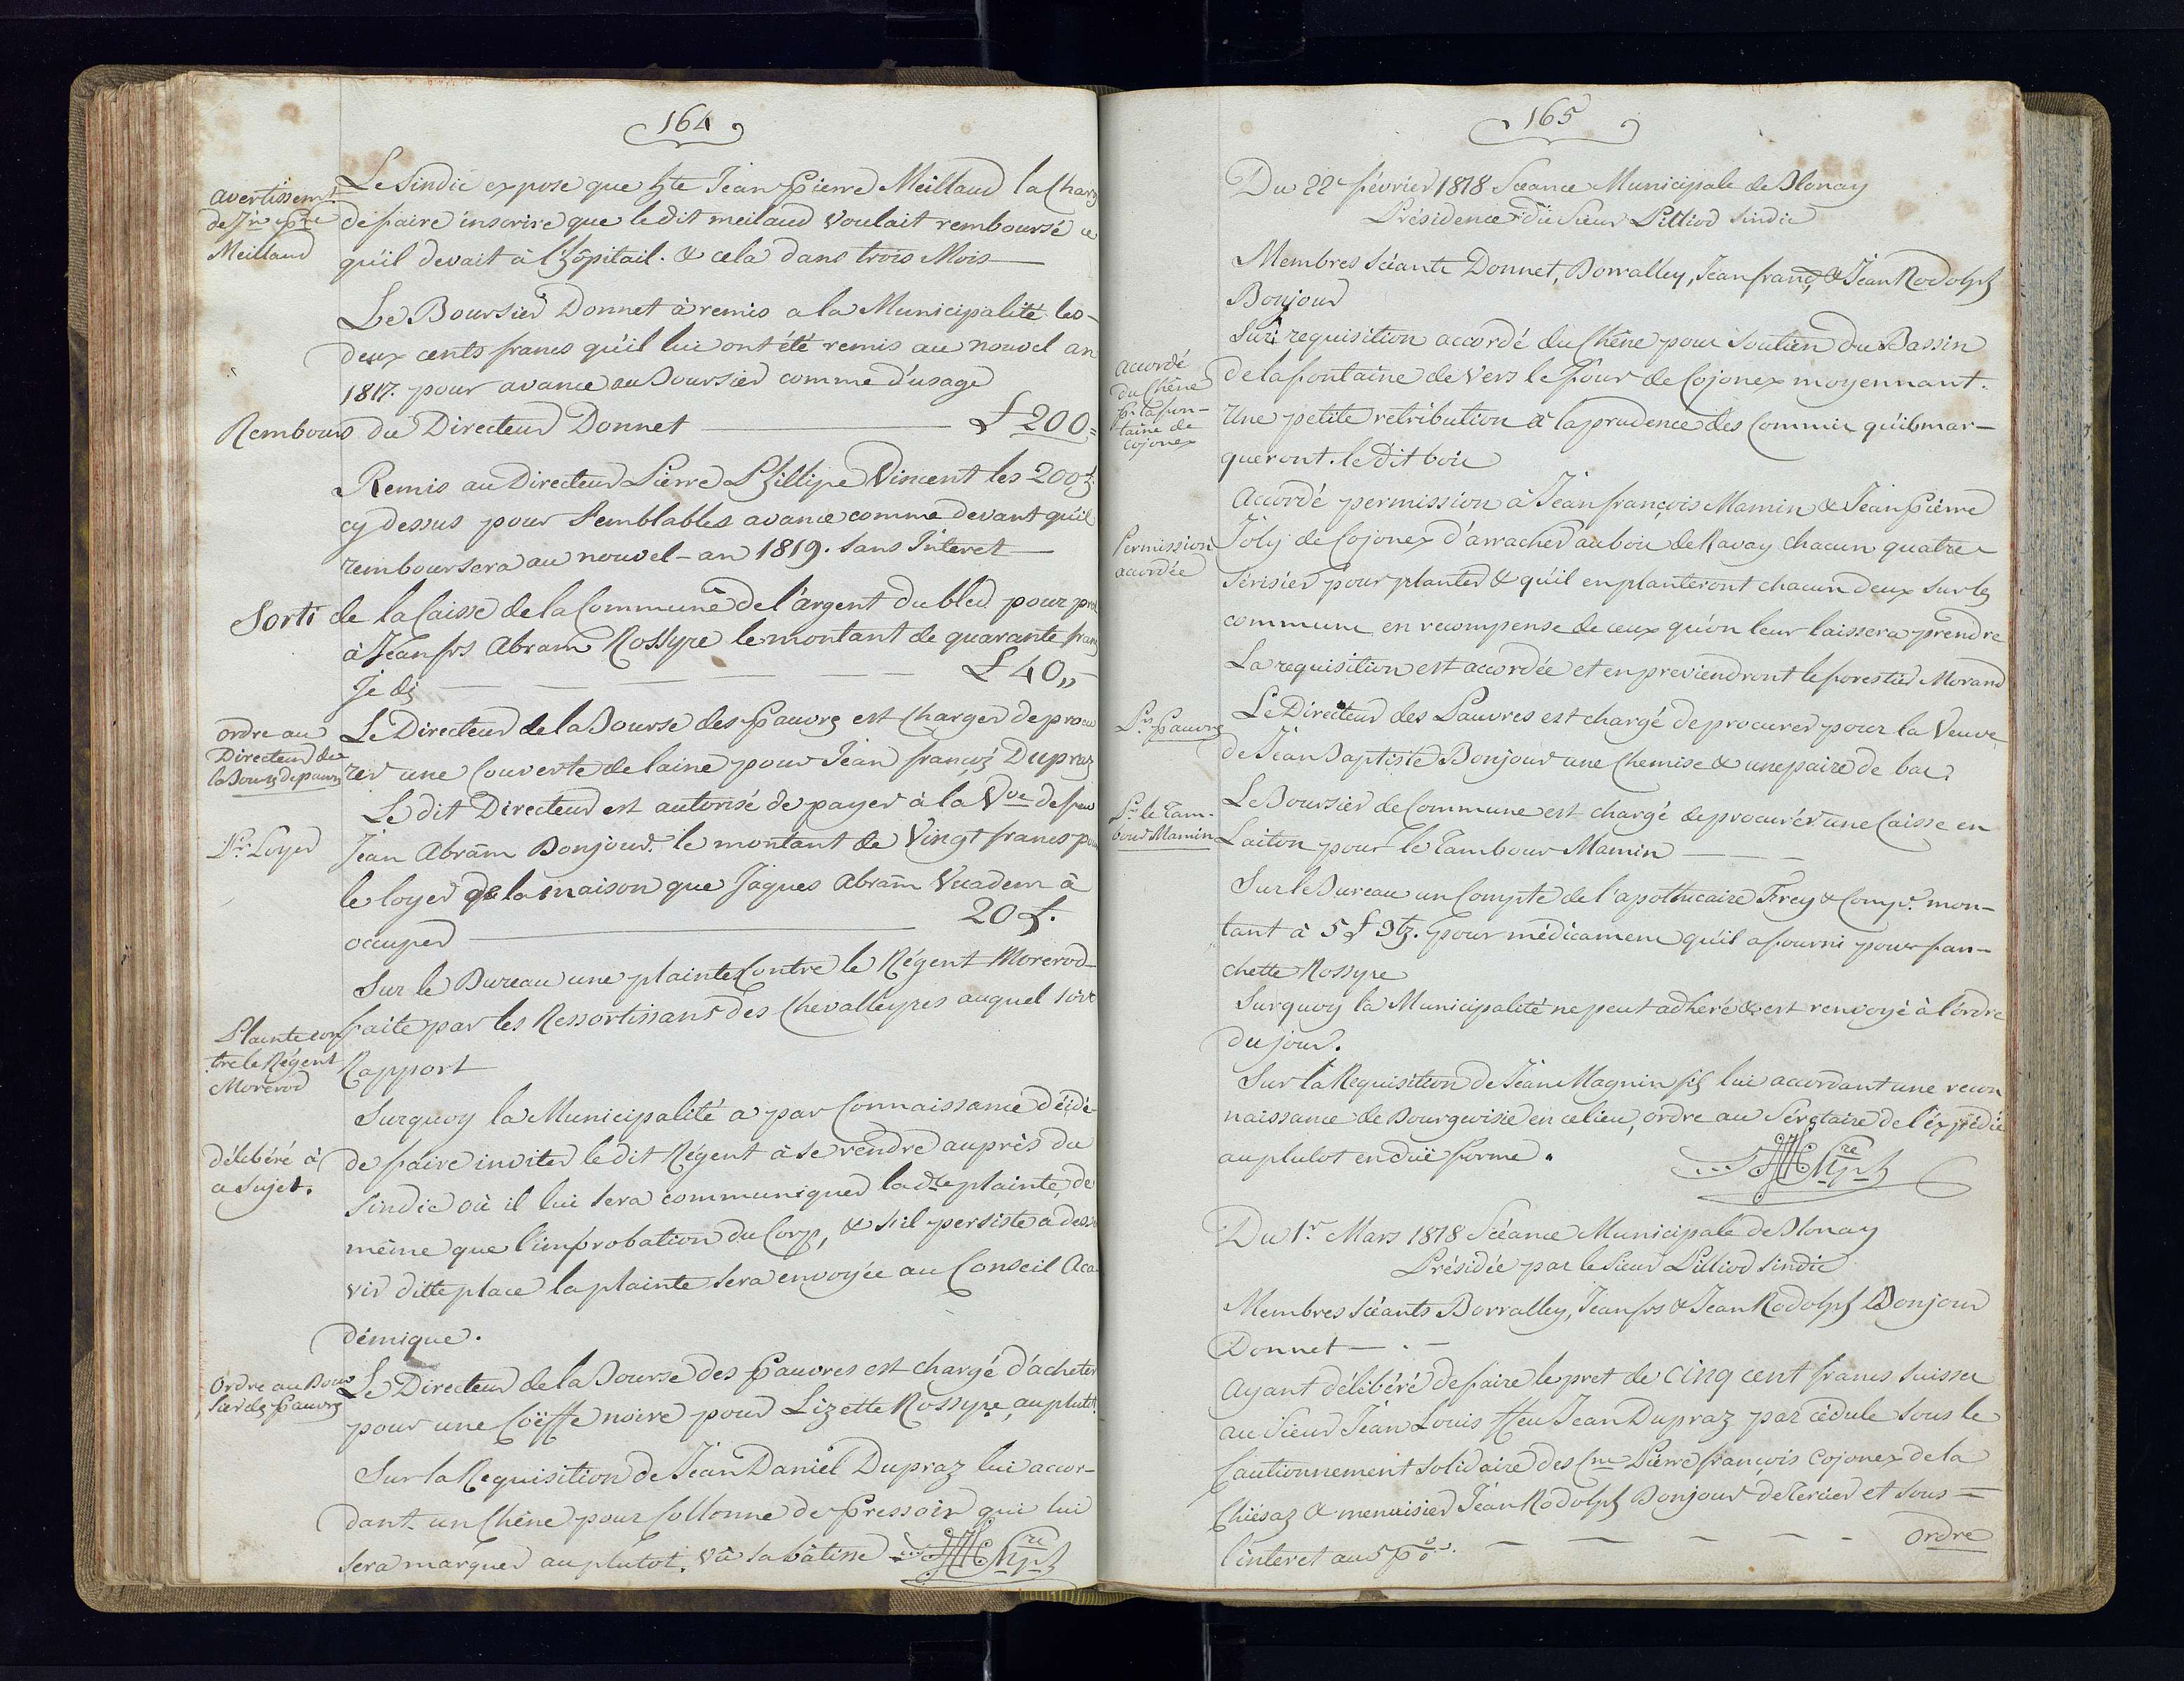 164
Avertissemt
de Jn Pre
Meillaud
Le Sindic expose que hte Jean Pierre Meillaud la Charg
de faire inscrire que le dit meilaud voulait remboursé ce
qu'il devait à l'hôpitail. & cela dans trois Mois —
Le Boursier Donnet à remis a la Municipalité les
deux cents francs qu'il lui ont été remis au nouvel an
1817. pour avance au Boursier comme d'usage
Rembours du Directeur Donnet — £ 200=
Remis au Directeur Pierre Phillipe Vincent les 200£
cy dessus pour Semblables avance comme devant qu'il
remboursera au nouvel-an 1819. sans Interet —
Sorti de la Caisse de la Commune de l'argent du bled pour pret
à Jean frs Abram Rossyre le montant de quarante francs
Je dis — £ 40,,
ordre au
Directeur de
la Bourse de pauvres
Le Directeur de la Bourse des Pauvres est Charger de procu
rer une Couverte de laine pour Jean françs Dupraz
Pr. Loyer
Le dit Directeur est autorisé de payer à la Vve de feu
Jean Abram Bonjour. le montant de Vingt francs pour
le loyer de la maison que Jaques Abram Vuadens à
occuper — 20 £.
Plainte con
tre le Régent
Morerod
Sur le Bureau une plainte Contre le Régent Morerod
faite par les Ressortissans des Chevalleyres auquel soit
Rapport
délibéré à
ce Sujet.
Surquoy la Municipalité a par Connaissance décidé
de faire inviter le dit Régent à se rendre auprès du
Sindic où il lui sera communiquer la dte plainte, de
même que l'improbation du Corp, & s'il persiste a desser
vir ditte place la plainte sera envoyée au Conseil Aca
démique.
Ordre au Bour
sier des Pauvres
Le Directeur de la Bourse des Pauvres est chargé d'acheter
pour une Coëffe noire pour Lizette Rossyre, au plutot.
Sur la Requisition de Jean Daniel Dupraz lui accor-
dant un Chêne pour Collonne de Pressoir qui lui
sera marquer au plutot. vû sa bâtisse
165
Du 22e février 1818 Séance Municipale de Blonay
Présidence du Sieur Pilliod Sindic
Membres Séants Donnet, Borralley, Jean franç, & Jean Rodolph
Bonjour
accordé
du Chêne
pr la fon-
taine de
Cojonex
Sur requisition accordé du Chêne pour Soutien du Bassin
de la fontaine de Vers le four de Cojonex moyennant.
Une petite retribution à la prudence des Commis qu'il mar-
queront. le dit bois
Permission
accordée
Accordé permission à Jean françois Mamin & Jean Pierre
Joly de Cojonex d'arracher au bois de Ravay chacun quatre
Serisier pour planter & qu'il en planteront chacun deux sur les
commune en recompense de ceux qu'on leur laissera prendre
La requisition est accordée et en previendront le forestier Morand
Pr. Pauvres
Le Directeur des Pauvres est chargé de procurer pour la Veuve
de Jean Baptiste Bonjour une Chemise & une paire de bas.
Pr. le Tam-
bour Mamin
Le Boursier de Commune est chargé de procurér une Caisse en
Laiton pour le Tambour Mamin —
Sur le Bureau un Compte de l'apothicaire Frey & Compe. mon-
tant à 5 £ 9 bz. pour médicamens qu'il a fourni pour fan-
chette Rossyre
Surquoy la Municipalité ne peut adhéré & est renvoyé à l'ordre
du jour.
Sur la Requisition de Jean Magnin fils lui accordant une recon
naissance de Bourgeoisie en ce lieu, ordre au Sécretaire de l'éxpédié
au plutot en duë forme.
Du 1r Mars 1818 Séance Municipale de Blonay
Présidée par le Sieur Pilliod Sindic
Membres Séants Borralley, Jean frs & Jean Rodolph Bonjour
Donnet — . —
Ayant délibéré de faire le pret de cinq cent francs Suisses
au Sieur Jean Louis ffeu Jean Dupraz par cédule sous le
Cautionnement Solidaire des Pierre françois Cojonex de la
Chiésaz & menuisier Jean Rodolph Bonjour de Tercier et sous =
l'interet au 5 p%. — ordre